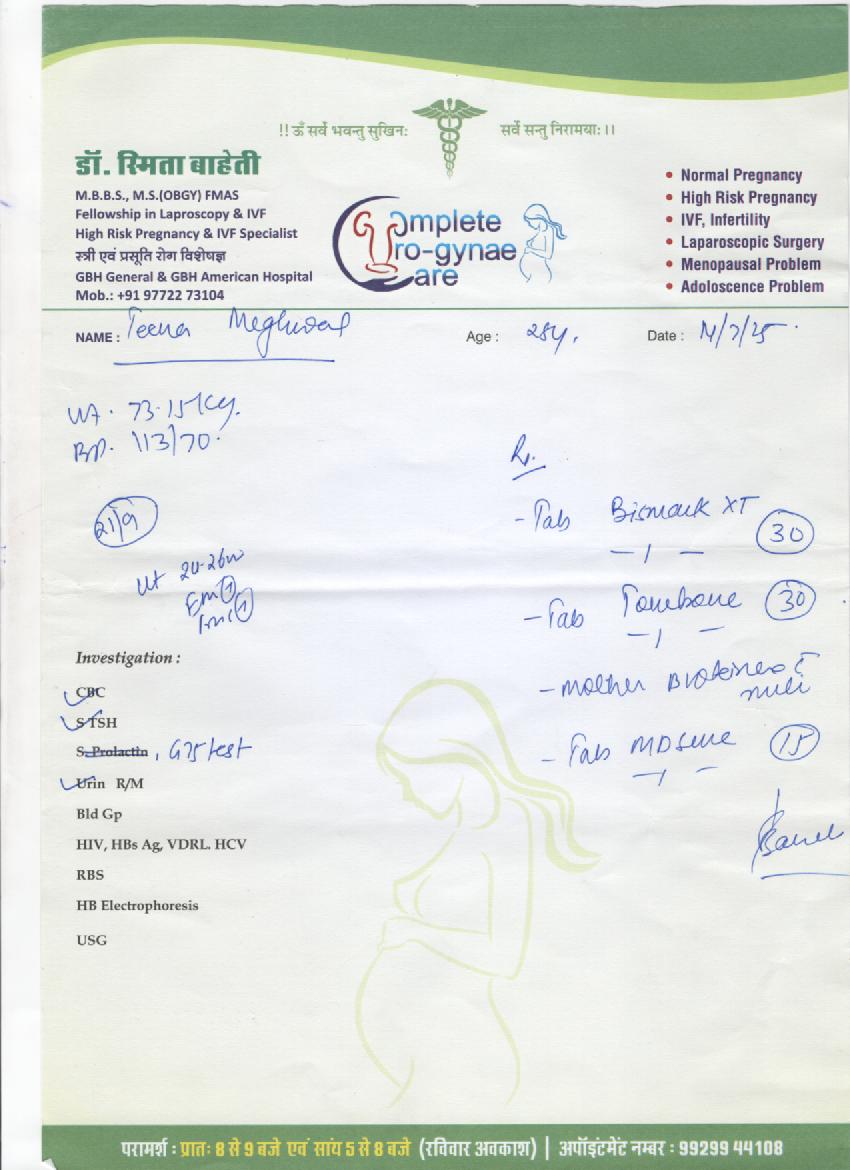 !! ॐ सर्वे भवन्तु सुखिनः सर्वे सन्तु निरामयाः ।।
डॉ. स्मिता बाहेती
M.B.B.S., M.S.(OBGY) FMAS
Fellowship in Laproscopy & IVF
High Risk Pregnancy & IVF Specialist
स्त्री एवं प्रसूति रोग विशेषज्ञ
GBH General & GBH American Hospital
Mob.: +91 97722 73104
Complete
Uro-gynae
Care
• Normal Pregnancy
• High Risk Pregnancy
• IVF, Infertility
• Laparoscopic Surgery
• Menopausal Problem
• Adoloscence Problem
NAME : Teena Meghwal Age : 28y. Date : 14/7/25
Wt. 73.15Kg.
BP. 113/70
21/9
Ut 24-26w
Rx.
- Tab Bismark XT 30
— 1 —
- Tab 30
— 1 —
- Mother
- Tab 15
— 1 —
Investigation :
CBC
S TSH
S. Prolactin , G75 test
Urin R/M
Bld Gp
HIV, HBs Ag, VDRL. HCV
RBS
HB Electrophoresis
USG
परामर्श : प्रातः 8 से 9 बजे एवं सांय 5 से 8 बजे (रविवार अवकाश) | अपॉइंटमेंट नम्बर : 99299 44108